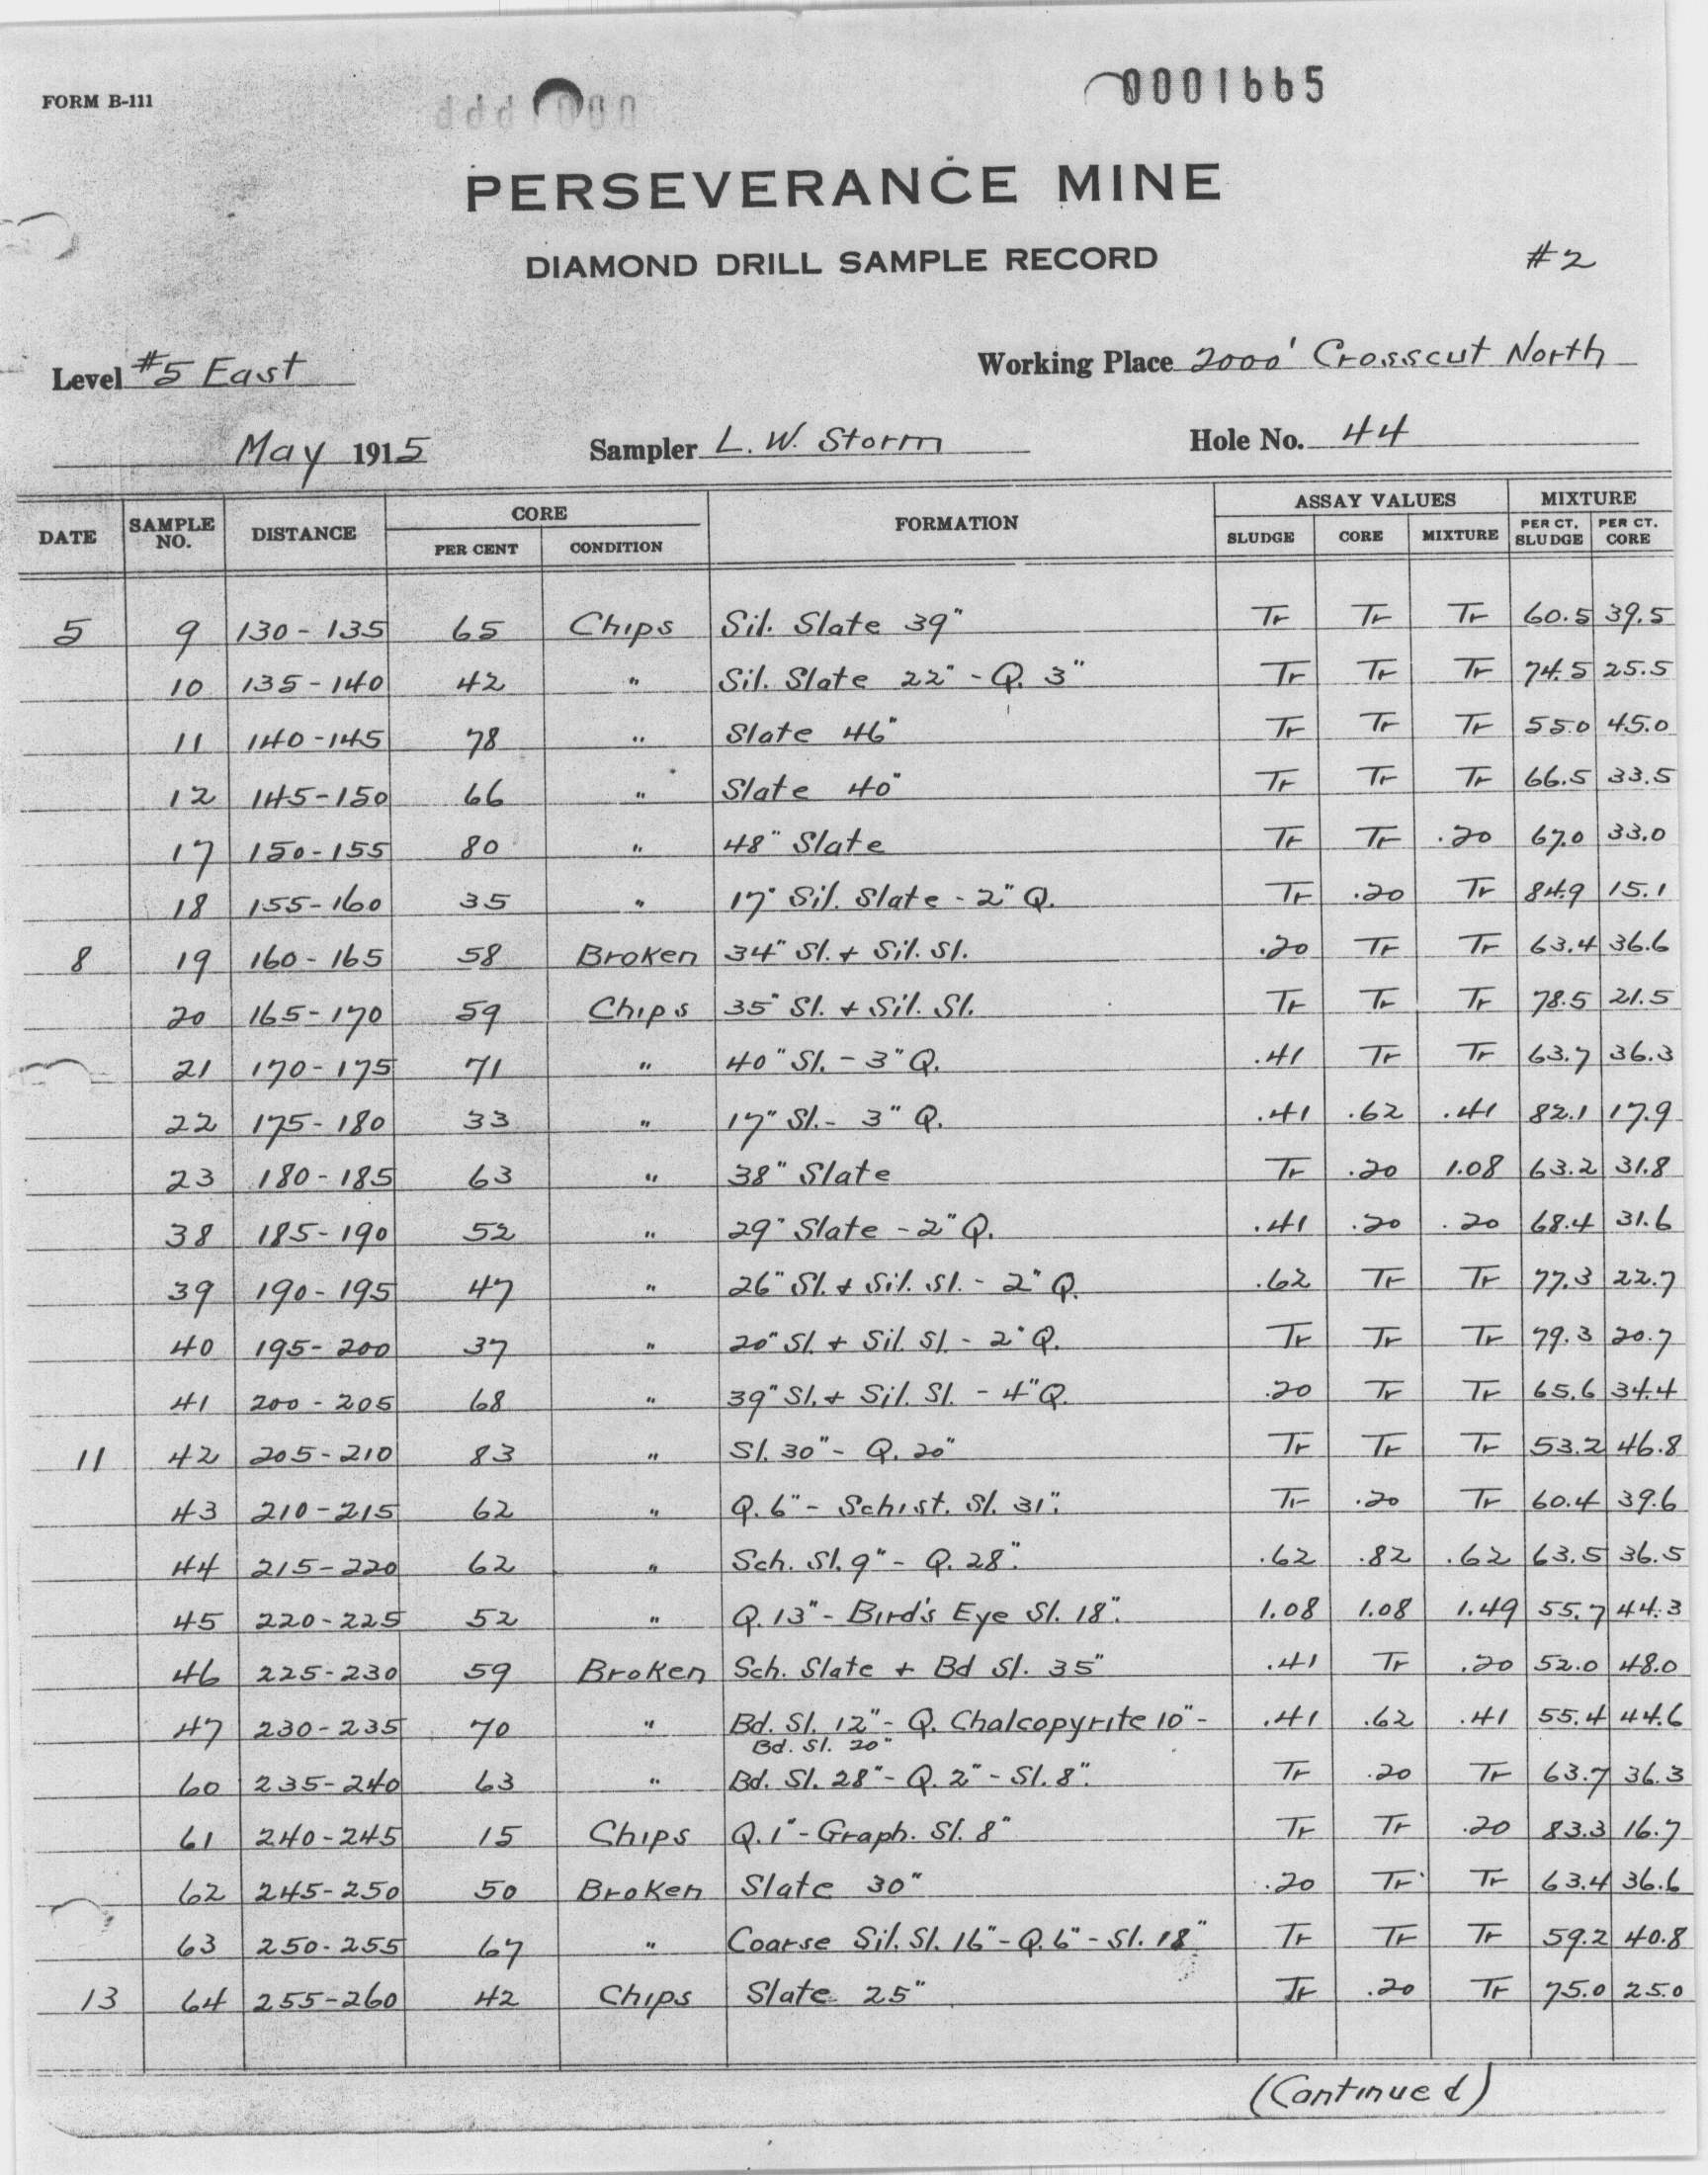 FORM B-111
0001665
PERSEVERANCE MINE
DIAMOND DRILL SAMPLE RECORD
#2
Level #5 East Working Place 2000' Crosscut North
May 1915 Sampler L. W. Storm Hole No. 44
DATE SAMPLE NO. DISTANCE CORE PER CENT CONDITION FORMATION ASSAY VALUES SLUDGE CORE MIXTURE MIXTURE PER CT. SLUDGE PER CT. CORE
5 9 130-135 65 Chips Sil. Slate 39" Tr Tr Tr 60.5 39.5
10 135-140 42 " Sil. Slate 22" - Q. 3" Tr Tr Tr 74.5 25.5
11 140-145 78 " Slate 46" Tr Tr Tr 55.0 45.0
12 145-150 66 " Slate 40" Tr Tr Tr 66.5 33.5
17 150-155 80 " 48" Slate Tr Tr .20 67.0 33.0
18 155-160 35 " 17" Sil. Slate - 2" Q. Tr .20 Tr 84.9 15.1
8 19 160-165 58 Broken 34" Sl. + Sil. Sl. .20 Tr Tr 63.4 36.6
20 165-170 59 Chips 35" Sl. + Sil. Sl. Tr Tr Tr 78.5 21.5
21 170-175 71 " 40" Sl. - 3" Q. .41 Tr Tr 63.7 36.3
22 175-180 33 " 17" Sl. - 3" Q. .41 .62 .41 82.1 17.9
23 180-185 63 " 38" Slate Tr .20 1.08 63.2 31.8
38 185-190 52 " 29" Slate - 2" Q. .41 .20 .20 68.4 31.6
39 190-195 47 " 26" Sl. + Sil. Sl. - 2" Q. .62 Tr Tr 77.3 22.7
40 195-200 37 " 20" Sl. + Sil. Sl. - 2" Q. Tr Tr Tr 79.3 20.7
41 200-205 68 " 39" Sl. + Sil. Sl. - 4" Q. .20 Tr Tr 65.6 34.4
11 42 205-210 83 " Sl. 30" - Q. 20" Tr Tr Tr 53.2 46.8
43 210-215 62 " Q. 6" - Schist. Sl. 31". Tr .20 Tr 60.4 39.6
44 215-220 62 " Sch. Sl. 9" - Q. 28". .62 .82 .62 63.5 36.5
45 220-225 52 " Q. 13" - Bird's Eye Sl. 18". 1.08 1.08 1.49 55.7 44.3
46 225-230 59 Broken Sch. Slate + Bd Sl. 35" .41 Tr .20 52.0 48.0
47 230-235 70 " Bd. Sl. 12" - Q. Chalcopyrite 10" - .41 .62 .41 55.4 44.6
Bd. Sl. 20"
60 235-240 63 " Bd. Sl. 28" - Q. 2" - Sl. 8". Tr .20 Tr 63.7 36.3
61 240-245 15 Chips Q. 1" - Graph. Sl. 8" Tr Tr .20 83.3 16.7
62 245-250 50 Broken Slate 30" .20 Tr Tr 63.4 36.6
63 250-255 67 " Coarse Sil. Sl. 16" - Q. 6" - Sl. 18" Tr Tr Tr 59.2 40.8
13 64 255-260 42 Chips Slate 25" Tr .20 Tr 75.0 25.0
(Continued)